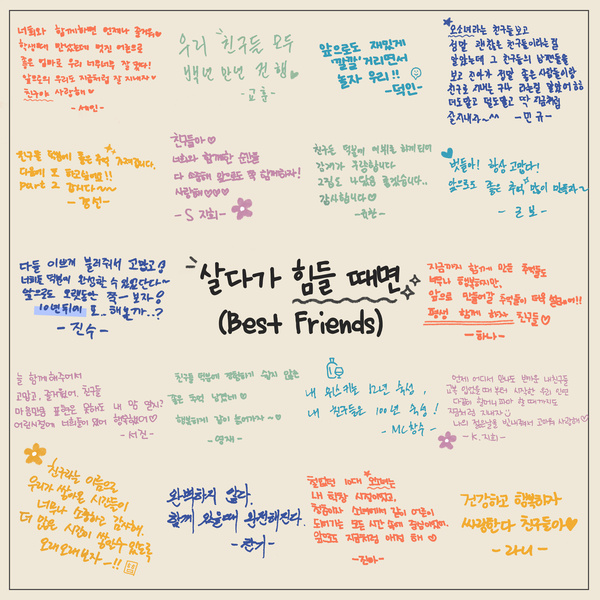 너희와 함께하면 언제나 즐거워♡
학생때 만났는데 멋진 어른으로
좋은 엄마로 우리 너무너무 잘 컸다!
앞으로의 우리도 지금처럼 잘 지내자♡
친구야 사랑해♡
-세인-
우리 친구들 모두
백년 만년 건행♥
-교훈-
앞으로도 재밌게
'깔깔' 거리면서
놀자 우리!!
-덕인-
보고
정말 괜찮은 친구이라는걸
알았는데 그 친구의 남편들을
보고 진짜가 정말 좋은 사람들이란
친구로 지내는 구나 라는걸 알았어
더도말고 덜도말고 딱 지금처럼
존지내자~^^ -민규-
친구들 덕분에 좋은 추억 가져갑니다.
다음에 또 뵈요!!
part 2 갑시다~~
-경선-
친구들아♡
너희와 함께한 순간들
다 소중해 앞으로도 쭉 함께하자!
사랑해♡♡♡
-S 지희-
친구들 덕분에
감사합니다♡
벗들아! 항상 고맙다!
앞으로도 좋은 추억 많이 만들자~
-근보-
다들 이쁘게 불러줘서 고맙고!
너희들 덕분에 완성할 수 있었단다~
앞으로도 오랫동안 쭉- 보자!
10년뒤에 또.. 해볼까..?
-진수-
살다가 힘들 때면
(Best Friends)
지금까지 함께 만든 추억들도
너무나 행복하지만,
앞으로 만들어갈 추억들이 더욱
평생 함께 하자 친구들♡
-하나-
늘 함께 해주어서
고맙고, 즐거웠어, 친구들
마음만큼 표현은 못해도 내 맘 알지?
어린시절에 너희들이 있어 행복했어♡
-서진-
친구들 덕분에 경험하기 쉽지 않은
좋은 추억 남겼네♡
행복하게 같이 늙어가자~♡
-영재-
내 위스키는 12년 숙성,
내 친구들은 100년 숙성!
-MC창수-
언제 어디서 만나도 반가운 내친구들
지금처럼 지내자
나의 젊은날을 빛내줘서 고마워 사랑해♡
-K.지희-
친구라는 이름으로
우리가 쌓아온 시간들이
너무나 소중하고 감사해.
더 많은 시간이 쌓일수 있도록
오래오래보자-!!
완벽하지 않다.
함께 있을때 완전해진다.
-찬기-
철없던 10대 소녀에는
내 학창 시절이었고,
청춘이자 소녀에서 같이 어른이
되어가는 모든 시간 속에 함께였어.
앞으로도 지금처럼 아껴 해♡
-진아-
건강하고 행복하자
싸랑한다 친구들아♥
-라니-